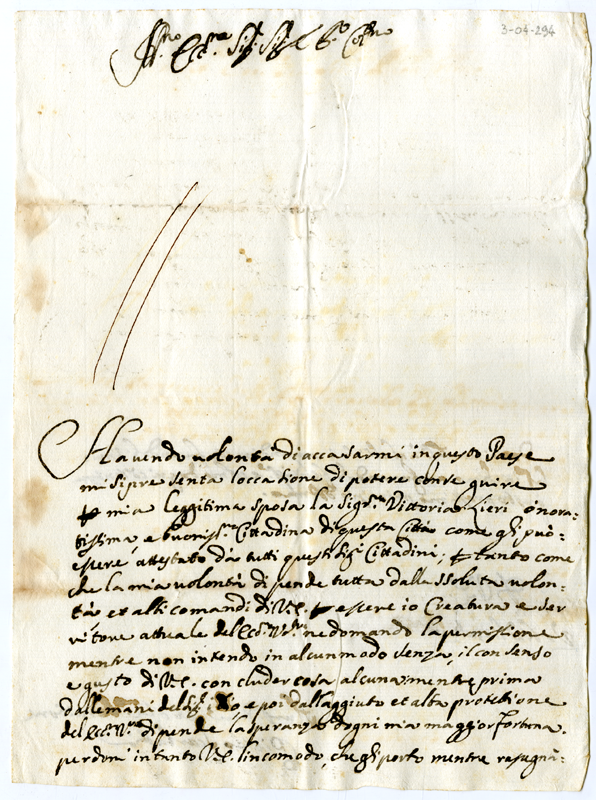 3-04-294
Ill.mo Ecc.mo Sig.r Sig.r e P.ne Col.mo
Havendo volontà di accasarmi in questo Paese
mi si presenta l'occasione di potere conseguire
p mia leggitima sposa la Sig.ra Vittoria Lieri onora-
tissima, e buoniss.ma Cittadina di questa Città come gli può-
essere attestato dà tutti questi Sig.i Cittadini; p tanto come
che la mia volontà dipende tutta dalla ssoluta volon-
tà, et alti comandi di V.E. p essere io Creatura e ser
vitore attuale del Ecc. V.ra ne domando la permissione
mentre non intendo in alcun modo senza, il consenso
e gusto di V.E. concluder cosa alcuna mentre prima
dalle mani del Sig.r idio, e poi dall aggiuto et alta protetione
del Ecc. V.ra dipende la speranza d ogni mia maggior fortuna.
perdoni in tanto V.E. l incomodo, che gli porto mentre rasegnã-